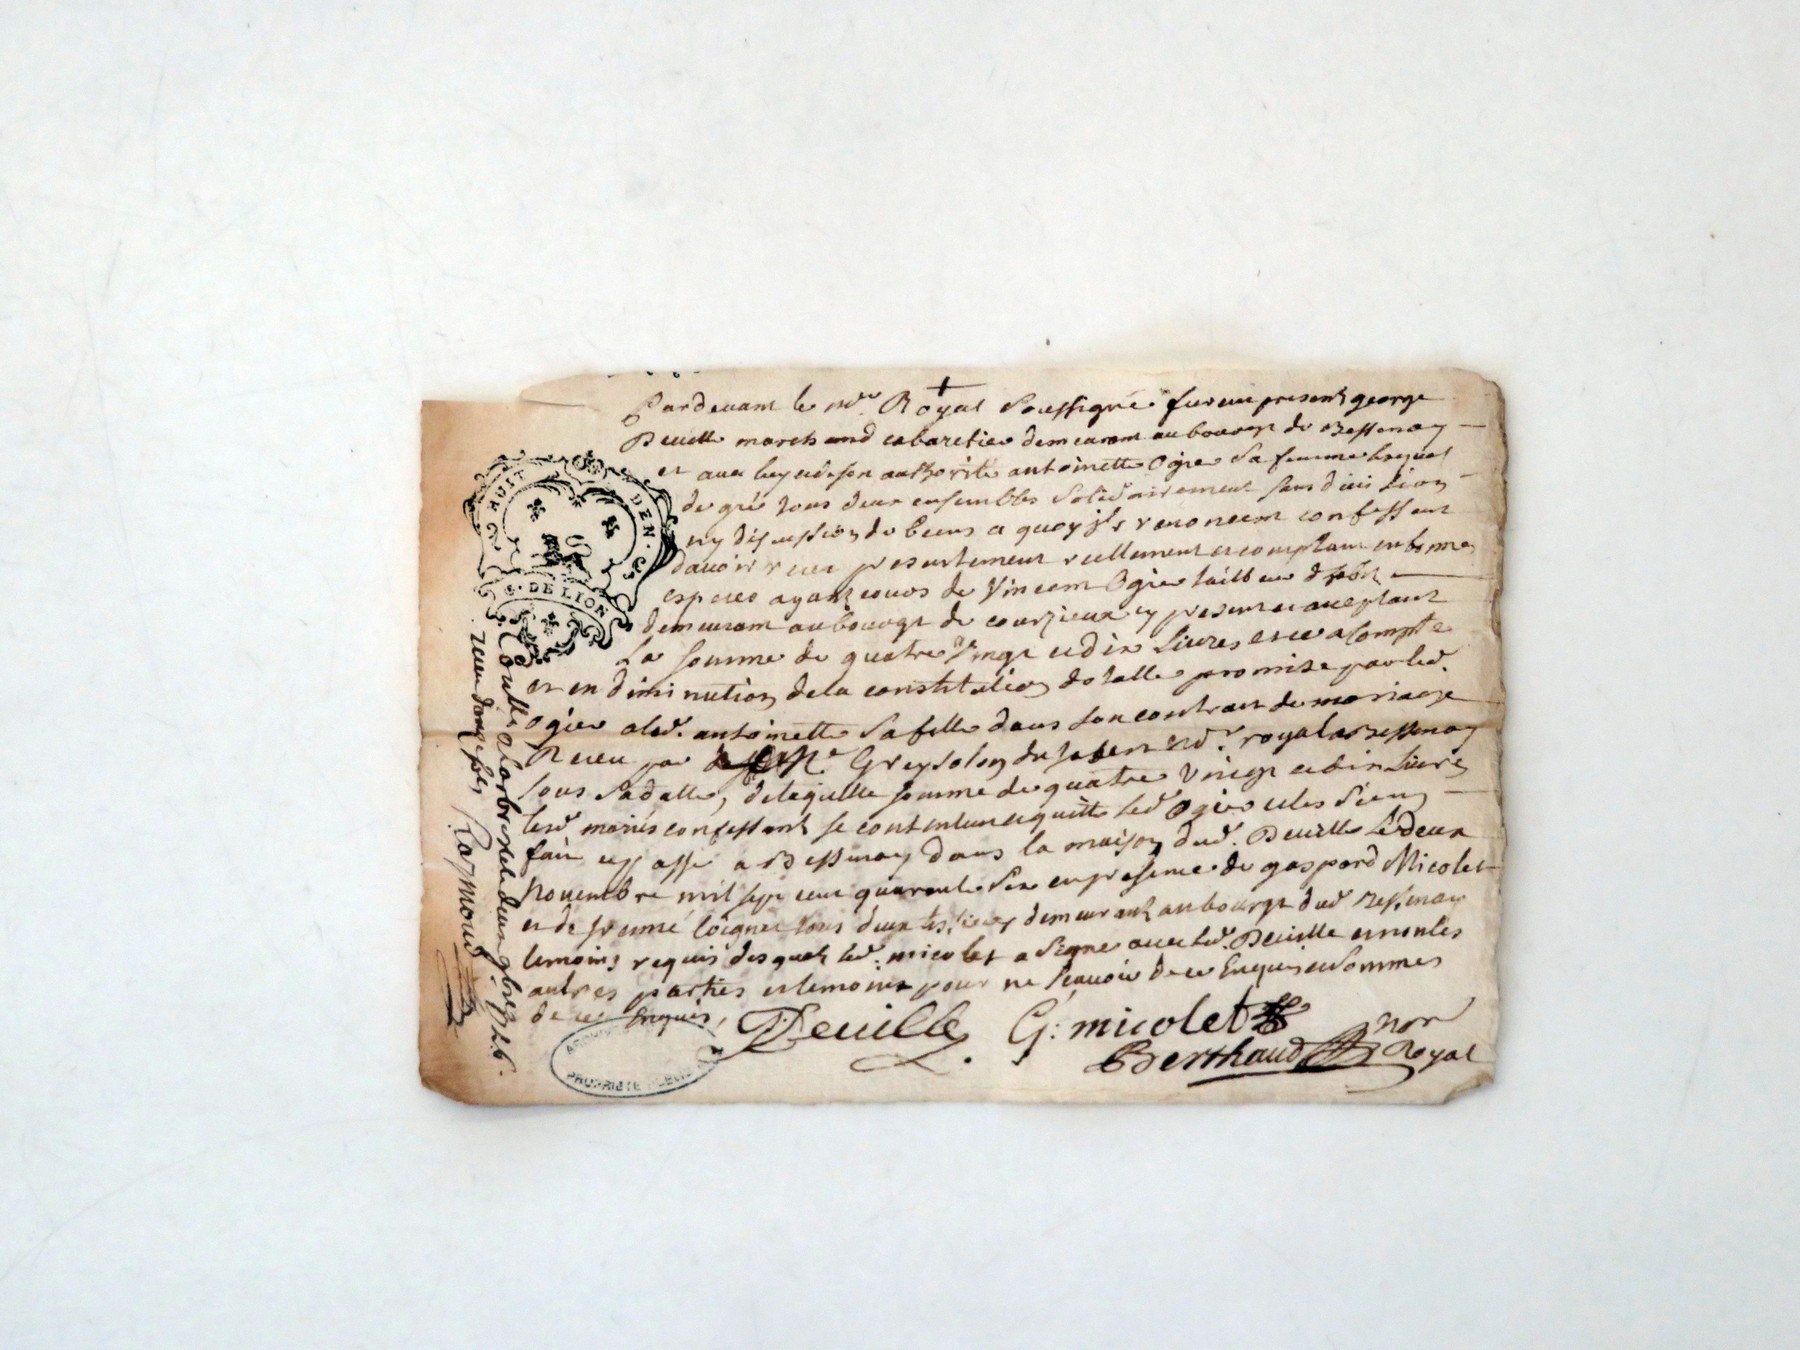 Pardevant le no.re Royal soussigné furent presents george
Deville marchand cabaretier demeurant au bourg de Bessenay
et avec luy et de son authorité antoinette Ogier sa femme lesquels
de gré tous deux ensembles solidairement sans division
ny discussion de biens a quoy ils renoncent confessent
davoir receu presentement reellement et comptant en bonnes
especes ayant cours de Vincent Ogier tailleur d'habits
demeurant au bourg de courzieux cy present et acceptant
La somme de quatre Vingt et dix Livres et ce a Compte
et en diminution de la constitution dotalle promise par led.
Ogier a lad. antoinette sa fille dans son contrat de mariage
Receu par M.e Greysolon no.re royal a Bessenay
sous sa datte, de laquelle somme de quatre Vingt et dix Livres
lesd. mariés confessants se contentent et quitte led. Ogier et les siens
fait et passé a Bessenay dans la maison dud. Deville Le deux
Novembre mil sept cent quarante six en presence de gaspard Micolet
et de tous deux demeurants au bourg dud. Bessenay
temoins requis desquels led. micolet a signé avec led. Deville et non les
autres parties et temoins pour ne sçavoir de ce Enquis et sommes
de ce Enquis,
Deville G: micolet
Berthaud no.re
Royal
G. HUIT DEN.
G. DE LION
Conlle a Larbresle deux 9bre 1746.
receu douze sols Raymond
PROPRIETE PUBLIQUE